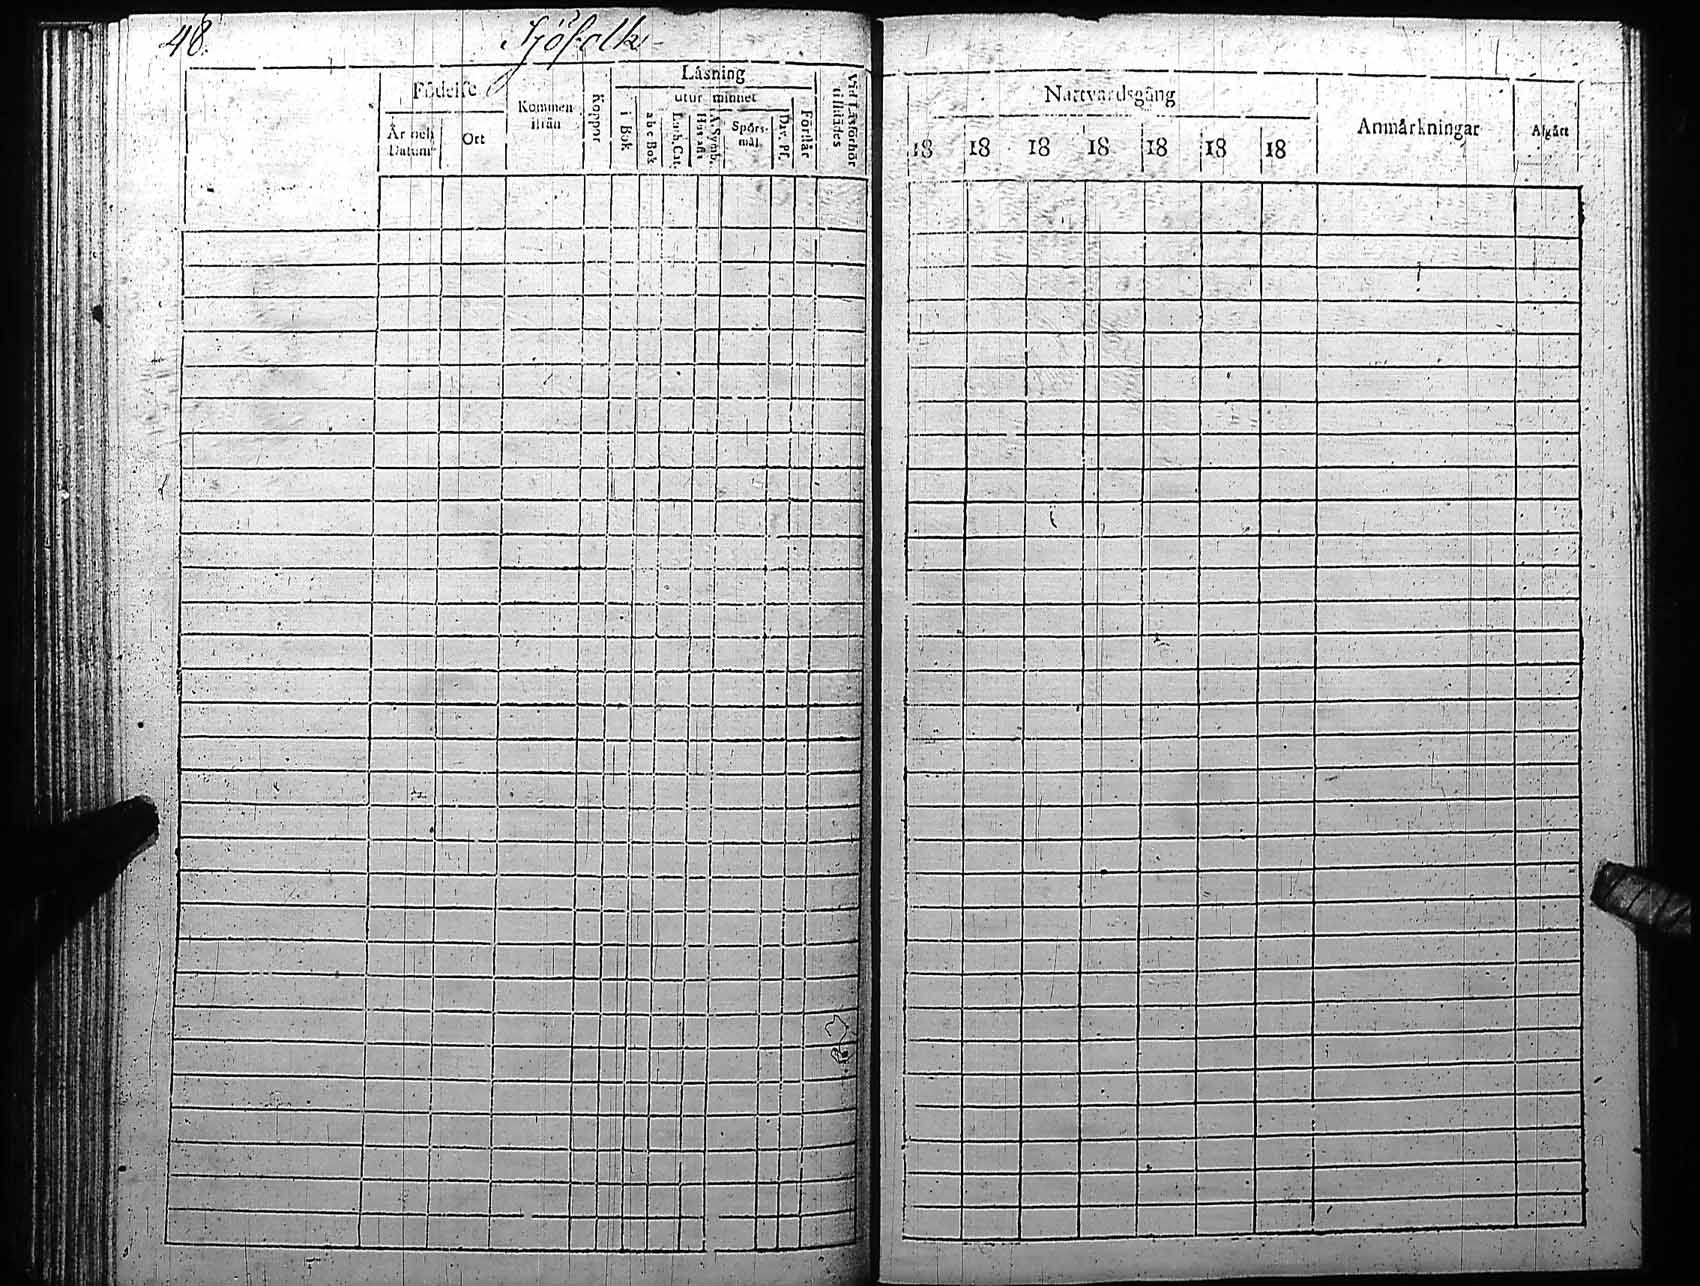 48. Sjöfolk
Födelse
Kommen ifrån
Koppor
Läsning
utur minnet
År och Datum
Ort
i Bok
abc Bok
Luth. Cat.
Hustafl.
A. Symb.
Spörsmål
Dav. Ps.
Förstår
Vid Läsförhör tillstädes
Nattvardsgång
18 18 18 18 18 18 18
Anmärkningar
Afgått